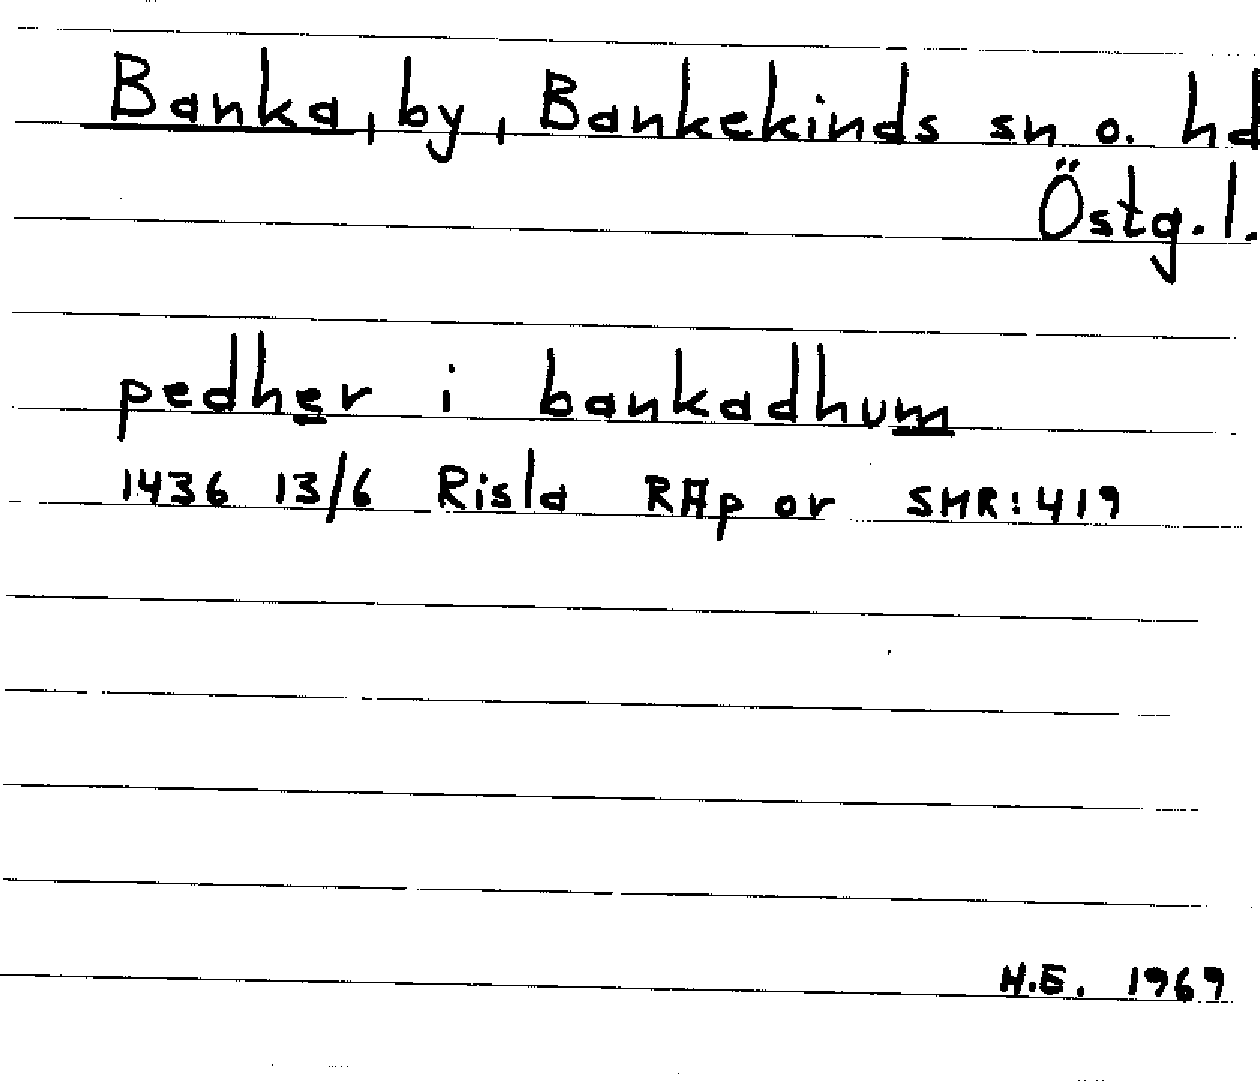 Banka, by, Bankekinds sn o. hd
Östg. l.
pedher i bankadhum
1436 13/6 Risla RAp or SMR: 419
H.E. 1969